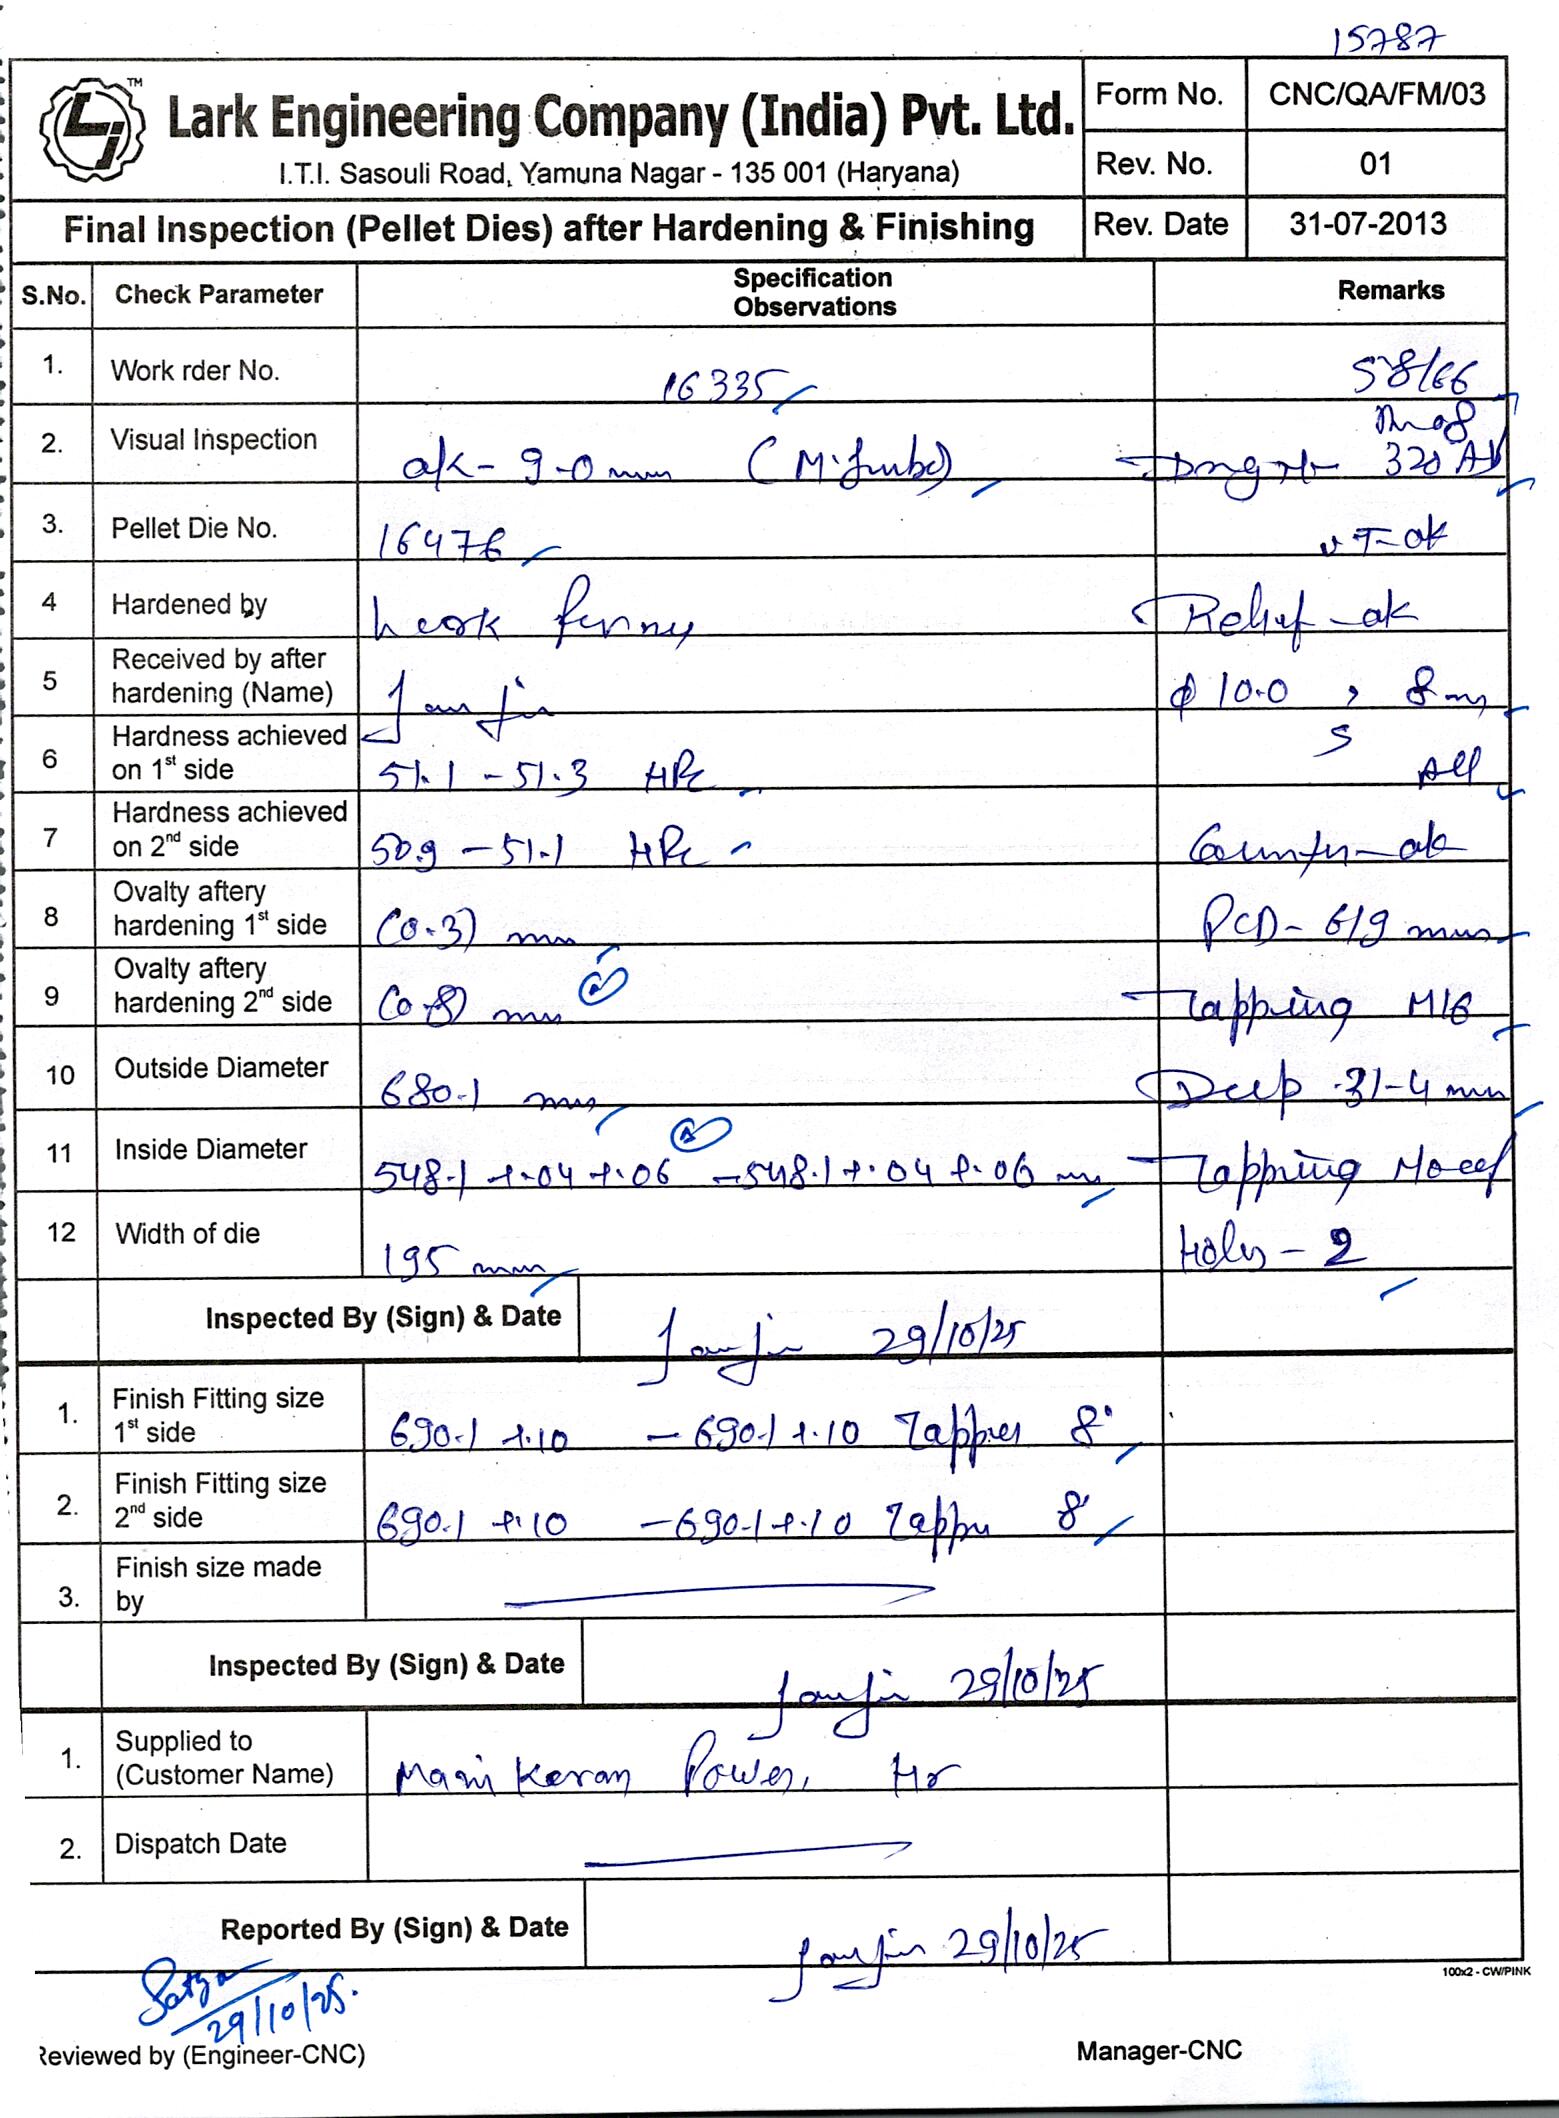 15787
Lark Engineering Company (India) Pvt. Ltd.
I.T.I. Sasouli Road, Yamuna Nagar - 135 001 (Haryana)
Form No. CNC/QA/FM/03
Rev. No. 01
Final Inspection (Pellet Dies) after Hardening & Finishing
Rev. Date 31-07-2013
S.No. Check Parameter Specification Observations Remarks
1. Work rder No. 16335 58/66
2. Visual Inspection ok - 9.0 mm (M. Jumbo) 320
3. Pellet Die No. 16476 UT-ok
4 Hardened by Relief - ok
5 Received by after hardening (Name) φ 10.0 , 8 mm
6 Hardness achieved on 1st side 51.1 - 51.3 HRc All
7 Hardness achieved on 2nd side 50.9 - 51.1 HRc Counter - ok
8 Ovalty aftery hardening 1st side (0.3) mm PCD - 619 mm
9 Ovalty aftery hardening 2nd side (0.8) mm Tapping M16
10 Outside Diameter 680.1 mm Deep 31.4 mm
11 Inside Diameter 548.1 +.04 +.06 - 548.1 +.04 +.06 mm Tapping
12 Width of die 195 mm Holes - 2
Inspected By (Sign) & Date 29/10/25
1. Finish Fitting size 1st side 690.1 +.10 - 690.1 +.10 Tapper 8°
2. Finish Fitting size 2nd side 690.1 +.10 - 690.1 +.10 Tapper 8°
3. Finish size made by
Inspected By (Sign) & Date 29/10/25
1. Supplied to (Customer Name) Mani Karan Power, Hr
2. Dispatch Date
Reported By (Sign) & Date 29/10/25
100x2 - CW/PINK
Satya
29/10/25.
Reviewed by (Engineer-CNC)
Manager-CNC